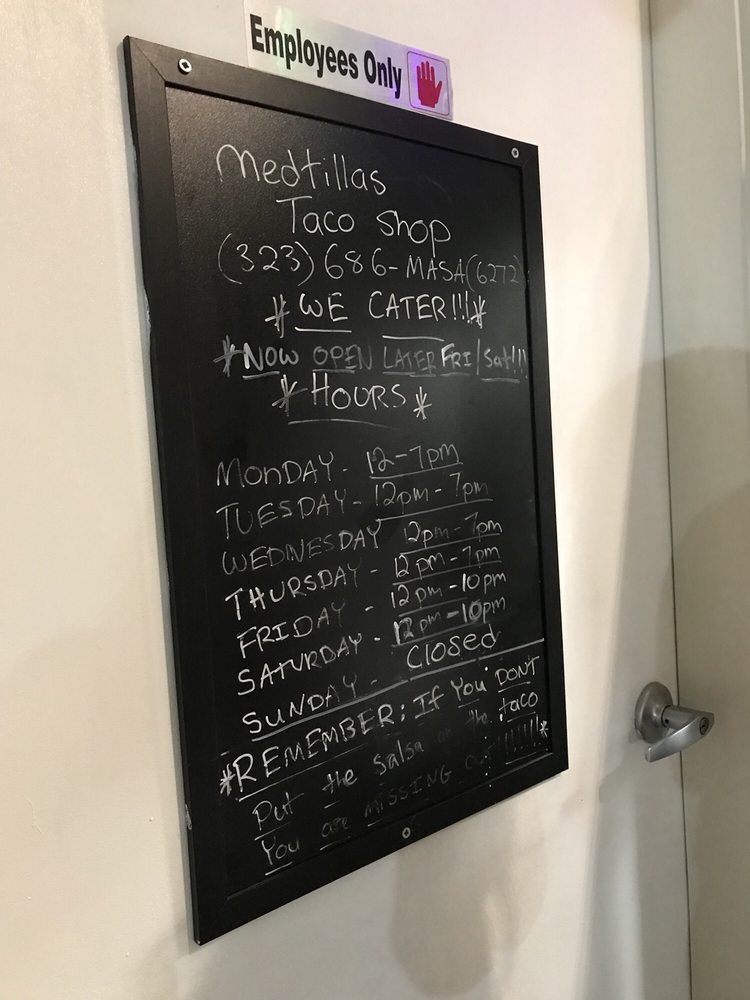 Employees Only
Medtillas
Taco Shop
(323) 686-MASA(6272)
*WE CATER!!!*
*NOW OPEN LATER FRI/Sat!!!
*HOURS*
MONDAY - 12-7pm
TUESDAY - 12pm-7pm
WEDNESDAY 12pm-7pm
THURSDAY - 12pm-7pm
FRIDAY - 12pm-10pm
SATURDAY - 12pm-10pm
SUNDAY - Closed
*REMEMBER: If You DONT
Put the Salsa on the taco
You are MISSING out!!!!!!*